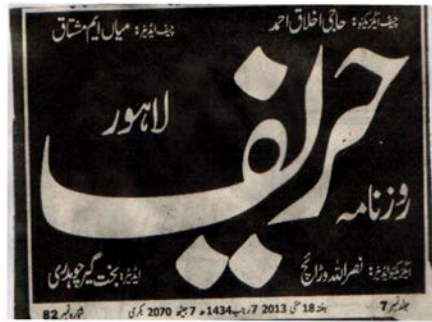 چیف ایگزیکٹو: حاجی اخلاق احمد چیف ایڈیٹر: میاں ایم مشتاق
روزنامہ حریف لاہور
ایگزیکٹو ایڈیٹر: نصراللہ وڑائچ ایڈیٹر: بخت گیر چوہدری
جلد نمبر 7 ہفتہ 18 مئی 2013 7 رجب 1434ھ 7 جیٹھ 2070 بکری شمارہ نمبر 82